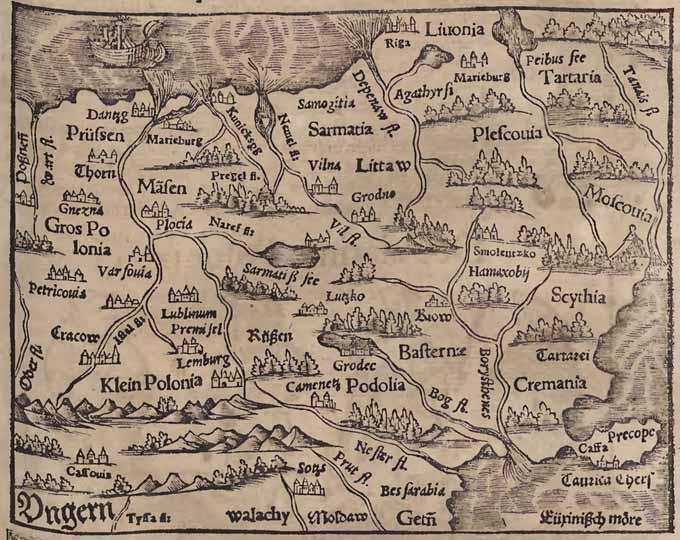 Liuonia
Riga
Peibus see
Marieburg
Tartaria
Tanais fl.
Agathyrsi
Depenaw fl.
Samogitia
Sarmatia
Plescouia
Dantzg
Prüssen
Marieburg
Kunicksgß
Nemel fl:
Vilna
Littaw
Thorn
Pregel fl.
Mäsen
Grodno
Moscouia
Gnezna
Gros Po
lonia
Plocia
Naref fl:
Vil fl.
Smolentzko
Hamaxobij
Varsouia
Sarmatiß see
Scythia
Petricouia
Lutzko
Kiow
Lublinum
Premissel
Cracow
Rüßen
Basternæ
Tartarei
Oder fl.
Lemburg
Grodec
Klein Polonia
Camenetz
Podolia
Borysthenes
Cremania
Bog fl.
Precope
Caffa
Nester fl.
Prut fl.
Cassouia
Sotys
Taurica Chers
Bessarabia
Vngern
Tyssa fl:
Walachy
Moldaw
Getñ
Eüxinisch möre